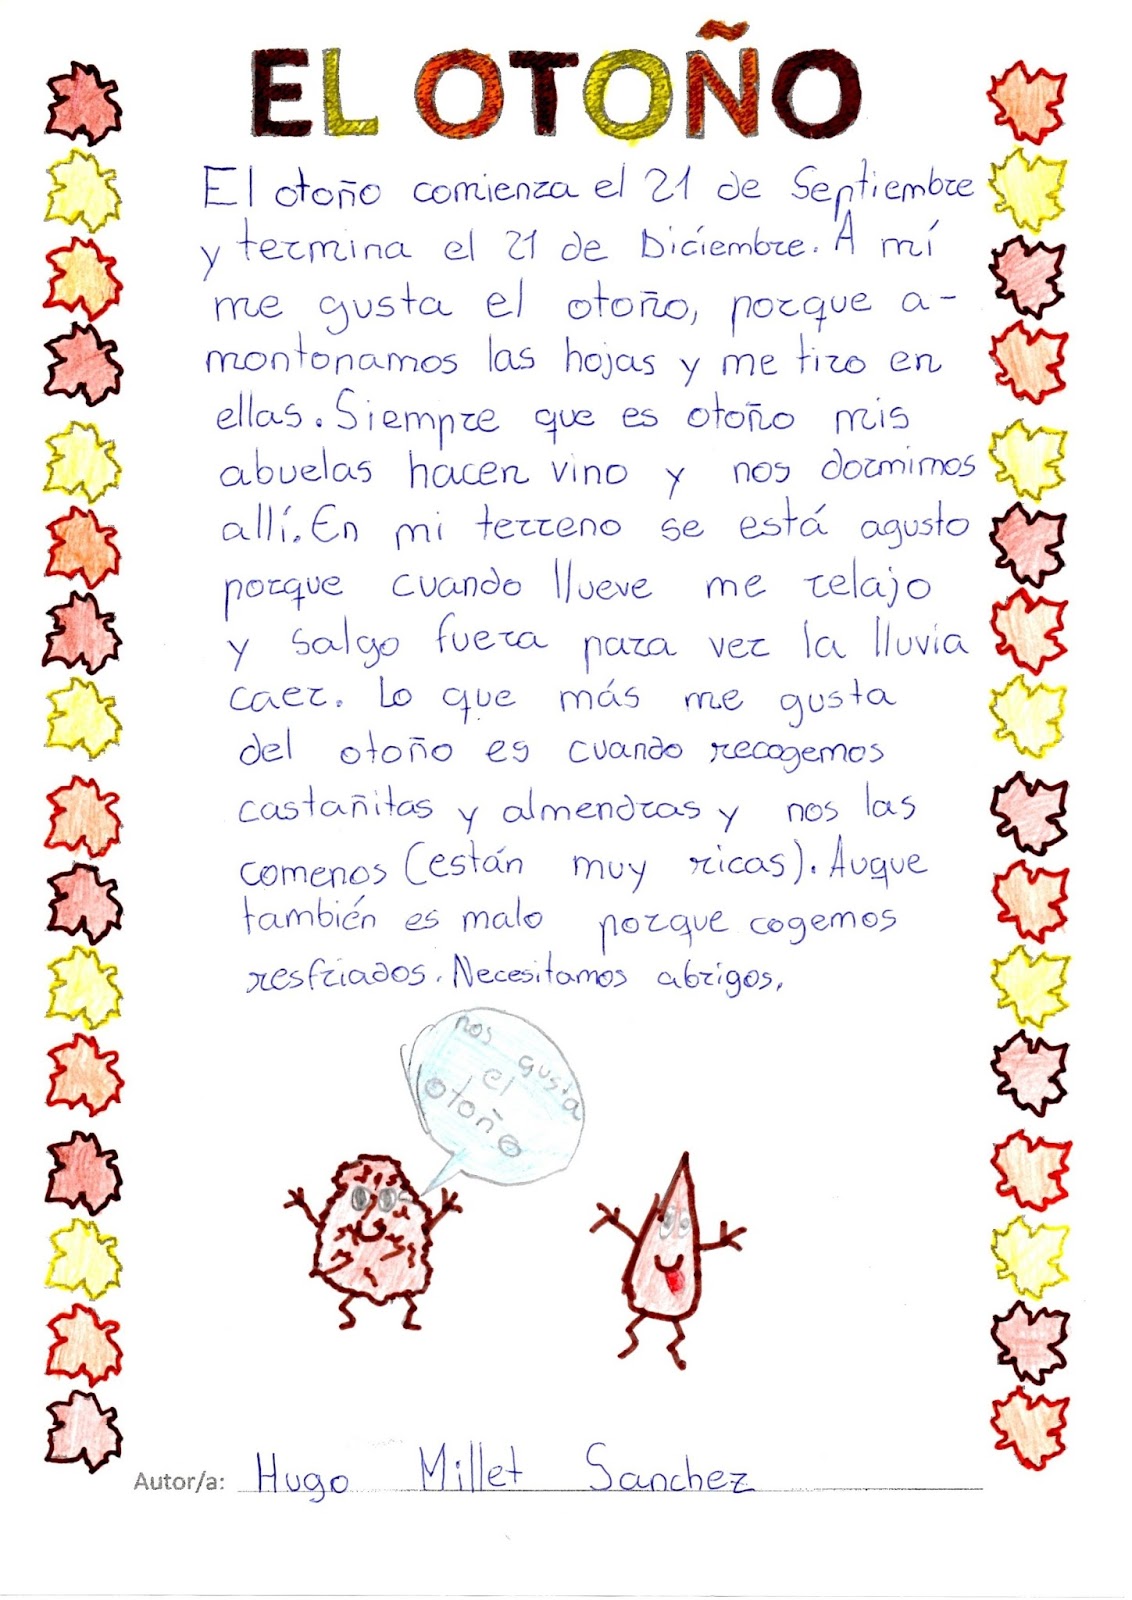 EL OTOÑO
El otoño comienza el 21 de Septiembre
y termina el 21 de Diciembre. A mí
me gusta el otoño, porque a-
montonamos las hojas y me tiro en
ellas. Siempre que es otoño mis
abuelas hacen vino y nos dormimos
allí. En mi terreno se está agusto
porque cuando llueve me relajo
y salgo fuera para ver la lluvia
caer. Lo que más me gusta
del otoño es cuando recogemos
castañitas y almendras y nos las
comenos (están muy ricas). Auque
también es malo porque cogemos
resfriados. Necesitamos abrigos.
nos gusta
el
otoño
Autor/a: Hugo Millet Sanchez